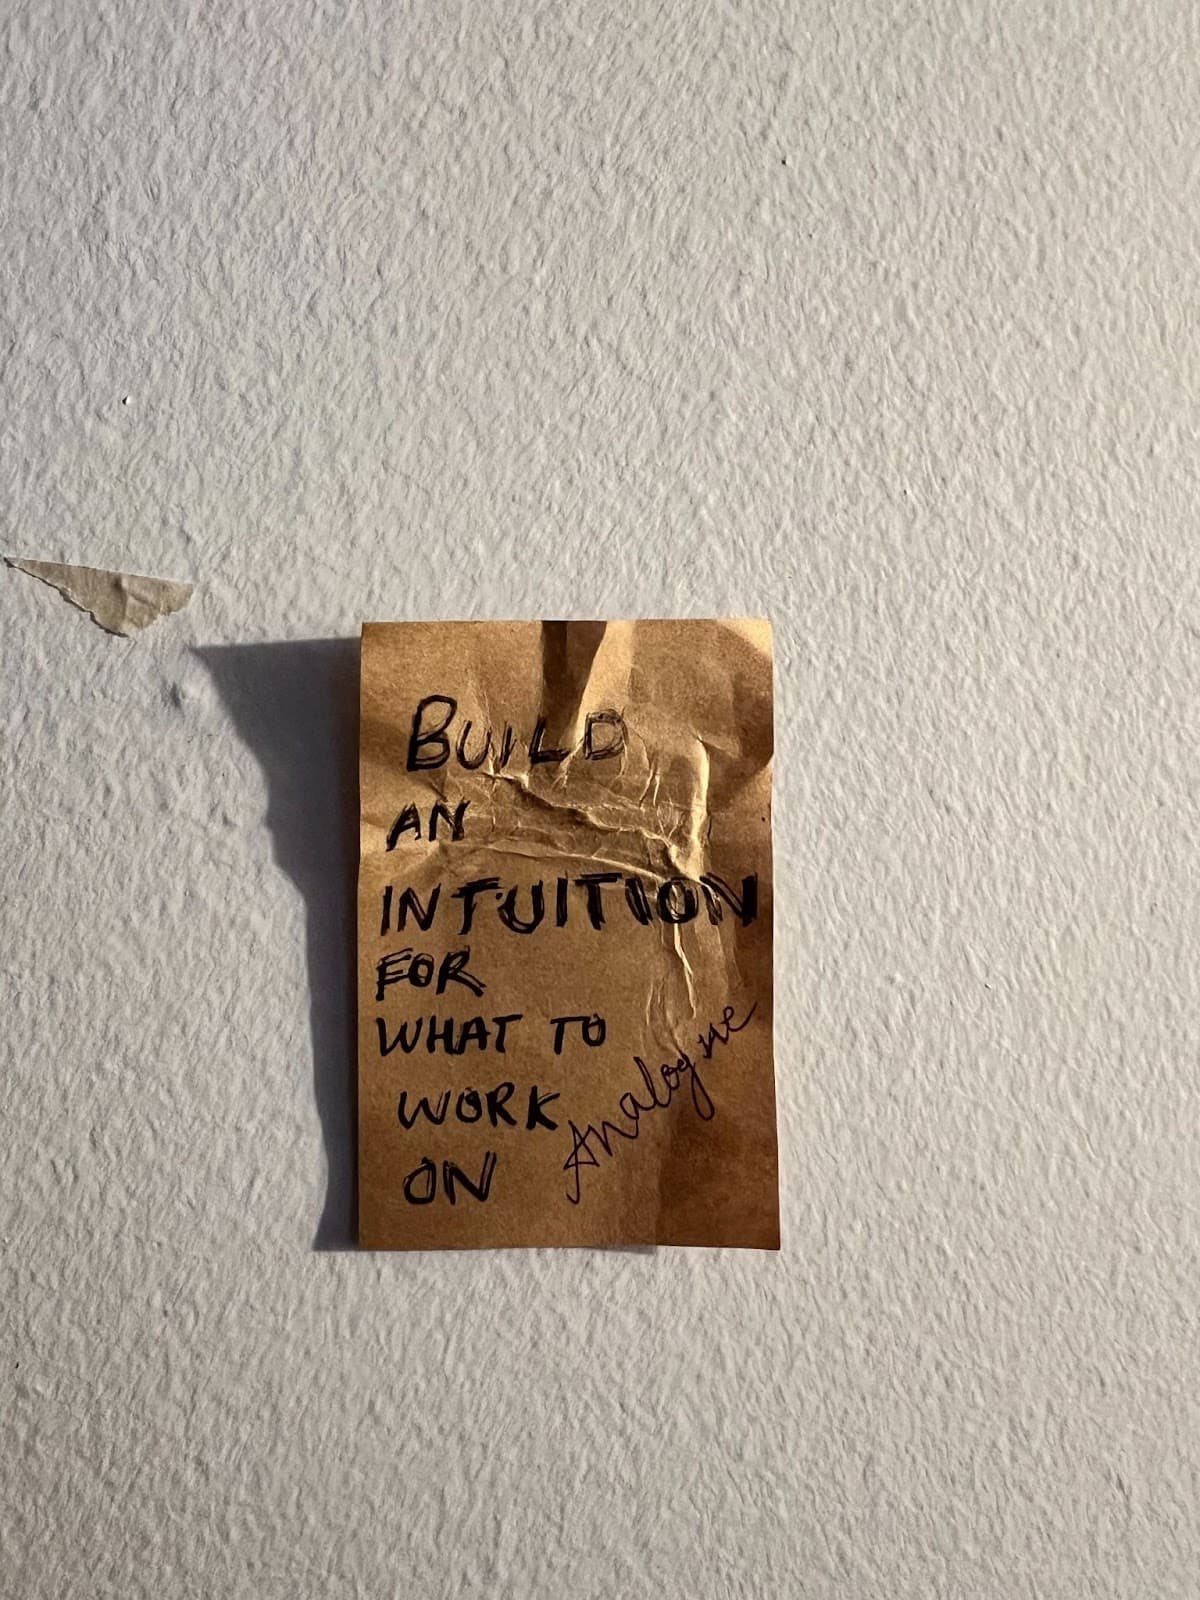 BUILD
AN
INTUITION
FOR
WHAT TO
WORK
ON
Analogue